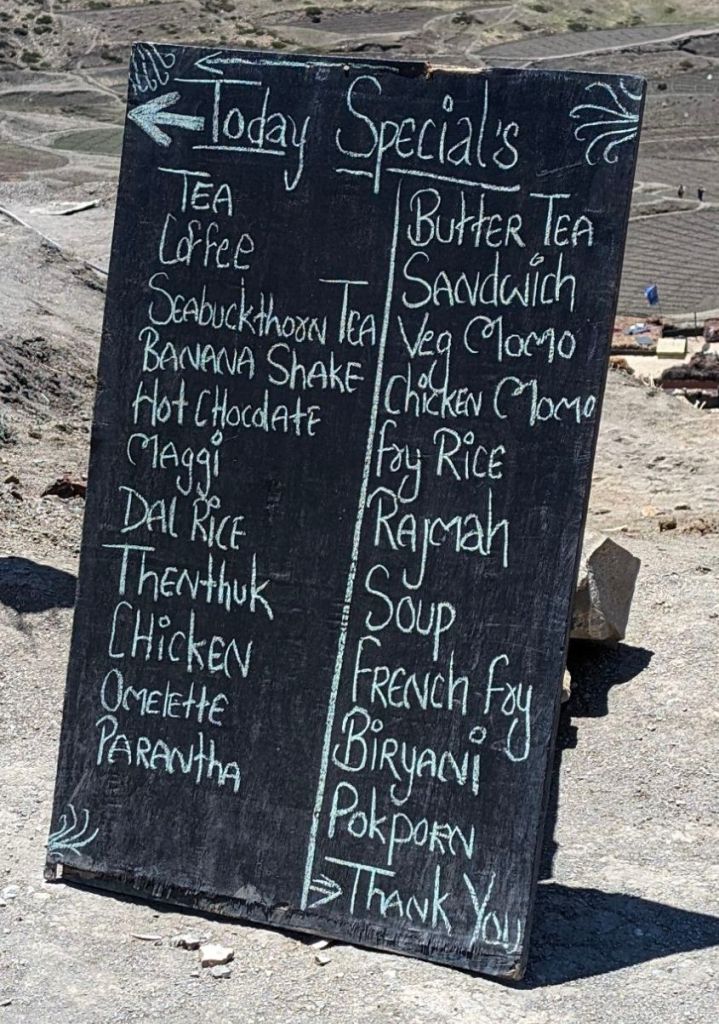 Today Special's
TEA
Coffee
SEabuckthorn TEA
BANANA SHAKE
Hot CHOCOlATE
Maggi
DAl RicE
THENthuk
CHickEN
OMElEttE
PARANtHA
ButtER TEA
SANdwich
Veg MoMo
CHickEN MoMo
fry RicE
RAjMAH
Soup
FRENCH fry
BiRyANi
PokpoRN
THANk You